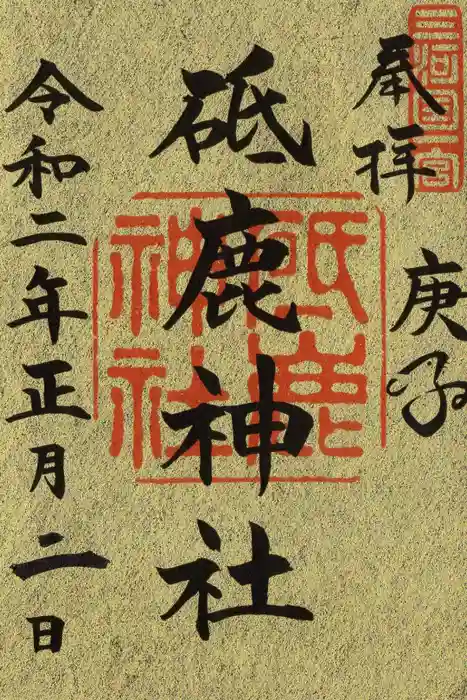 三河国一宮
奉拝
庚子
砥鹿神社
砥鹿神社
令和二年正月二日